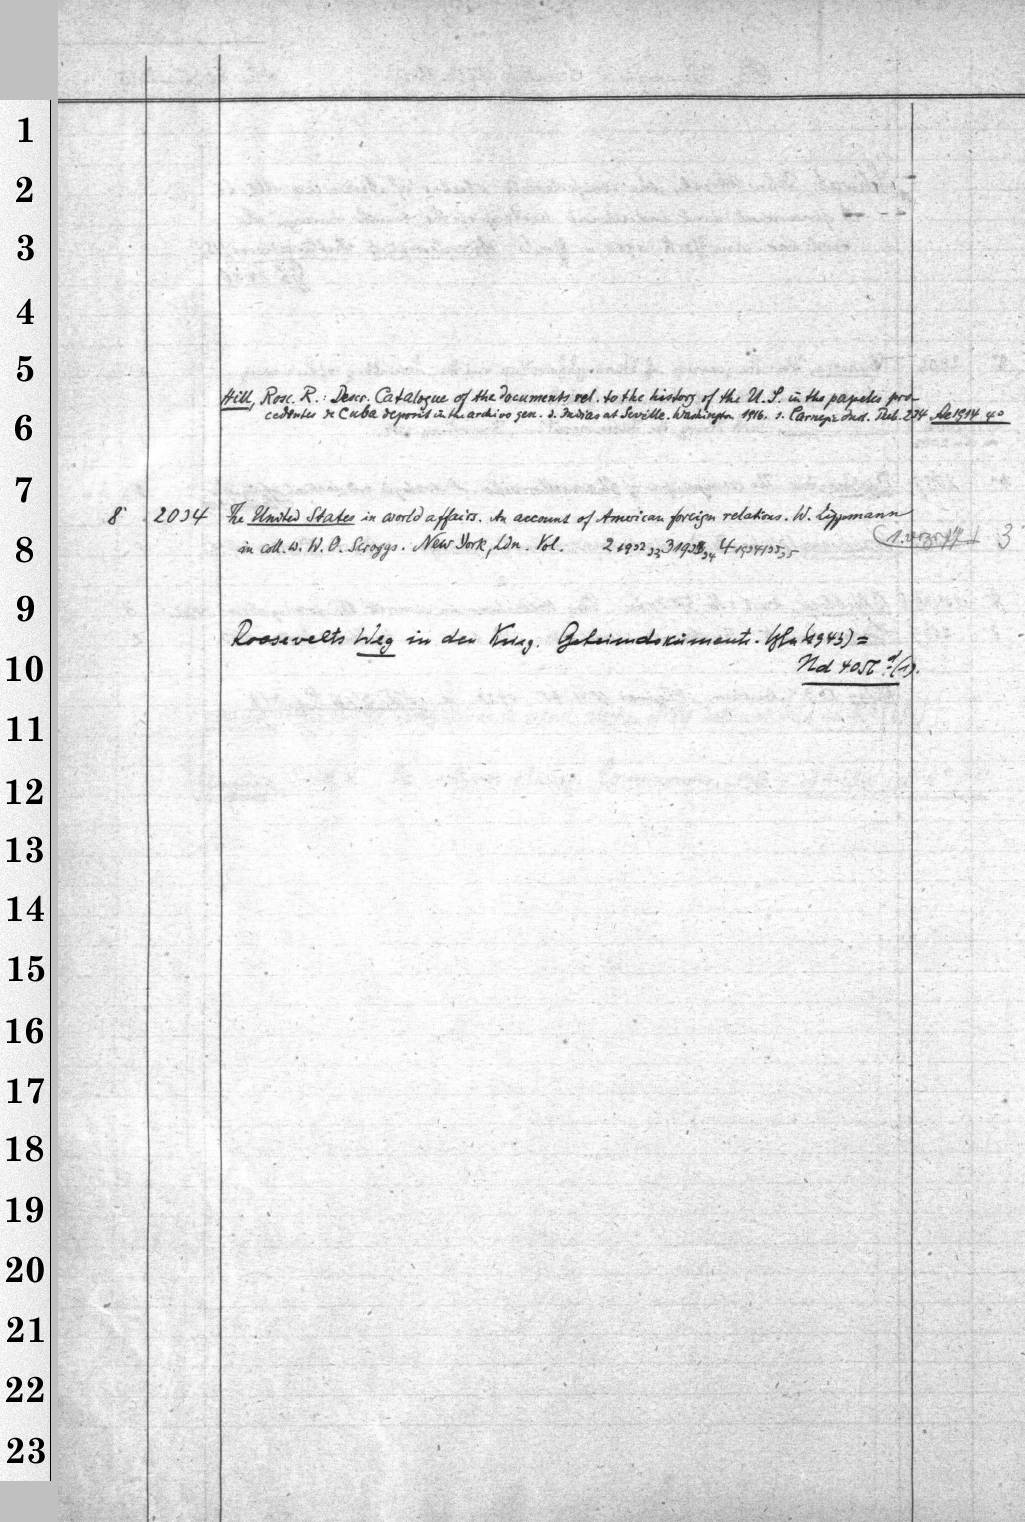 1
2
3
4
5
Hill, Rosc. R.: Descr. Catalogue of the documents rel. to the history of the U. S. in the papeles pro-
cedentes de Cuba deposit. in the archivo gen. d. Indias at Seville. Washington 1916. s. Carnegie Inst. Publ. 234 Ae 1514 40
6
7
8° 2034 The United States in world affairs. An account of American foreign relations. W. Lippmann
8
in coll. w. W. O. Scroggs. New York, Ldn. Vol. 2 1932 33 3 1933 34 4 1934/35 3
9
Roosevelts Weg in den Krieg. Geheimdokumente. Bln (1943) =
10
Nd 4056 d (1).
11
12
13
14
15
16
17
18
19
20
21
22
23